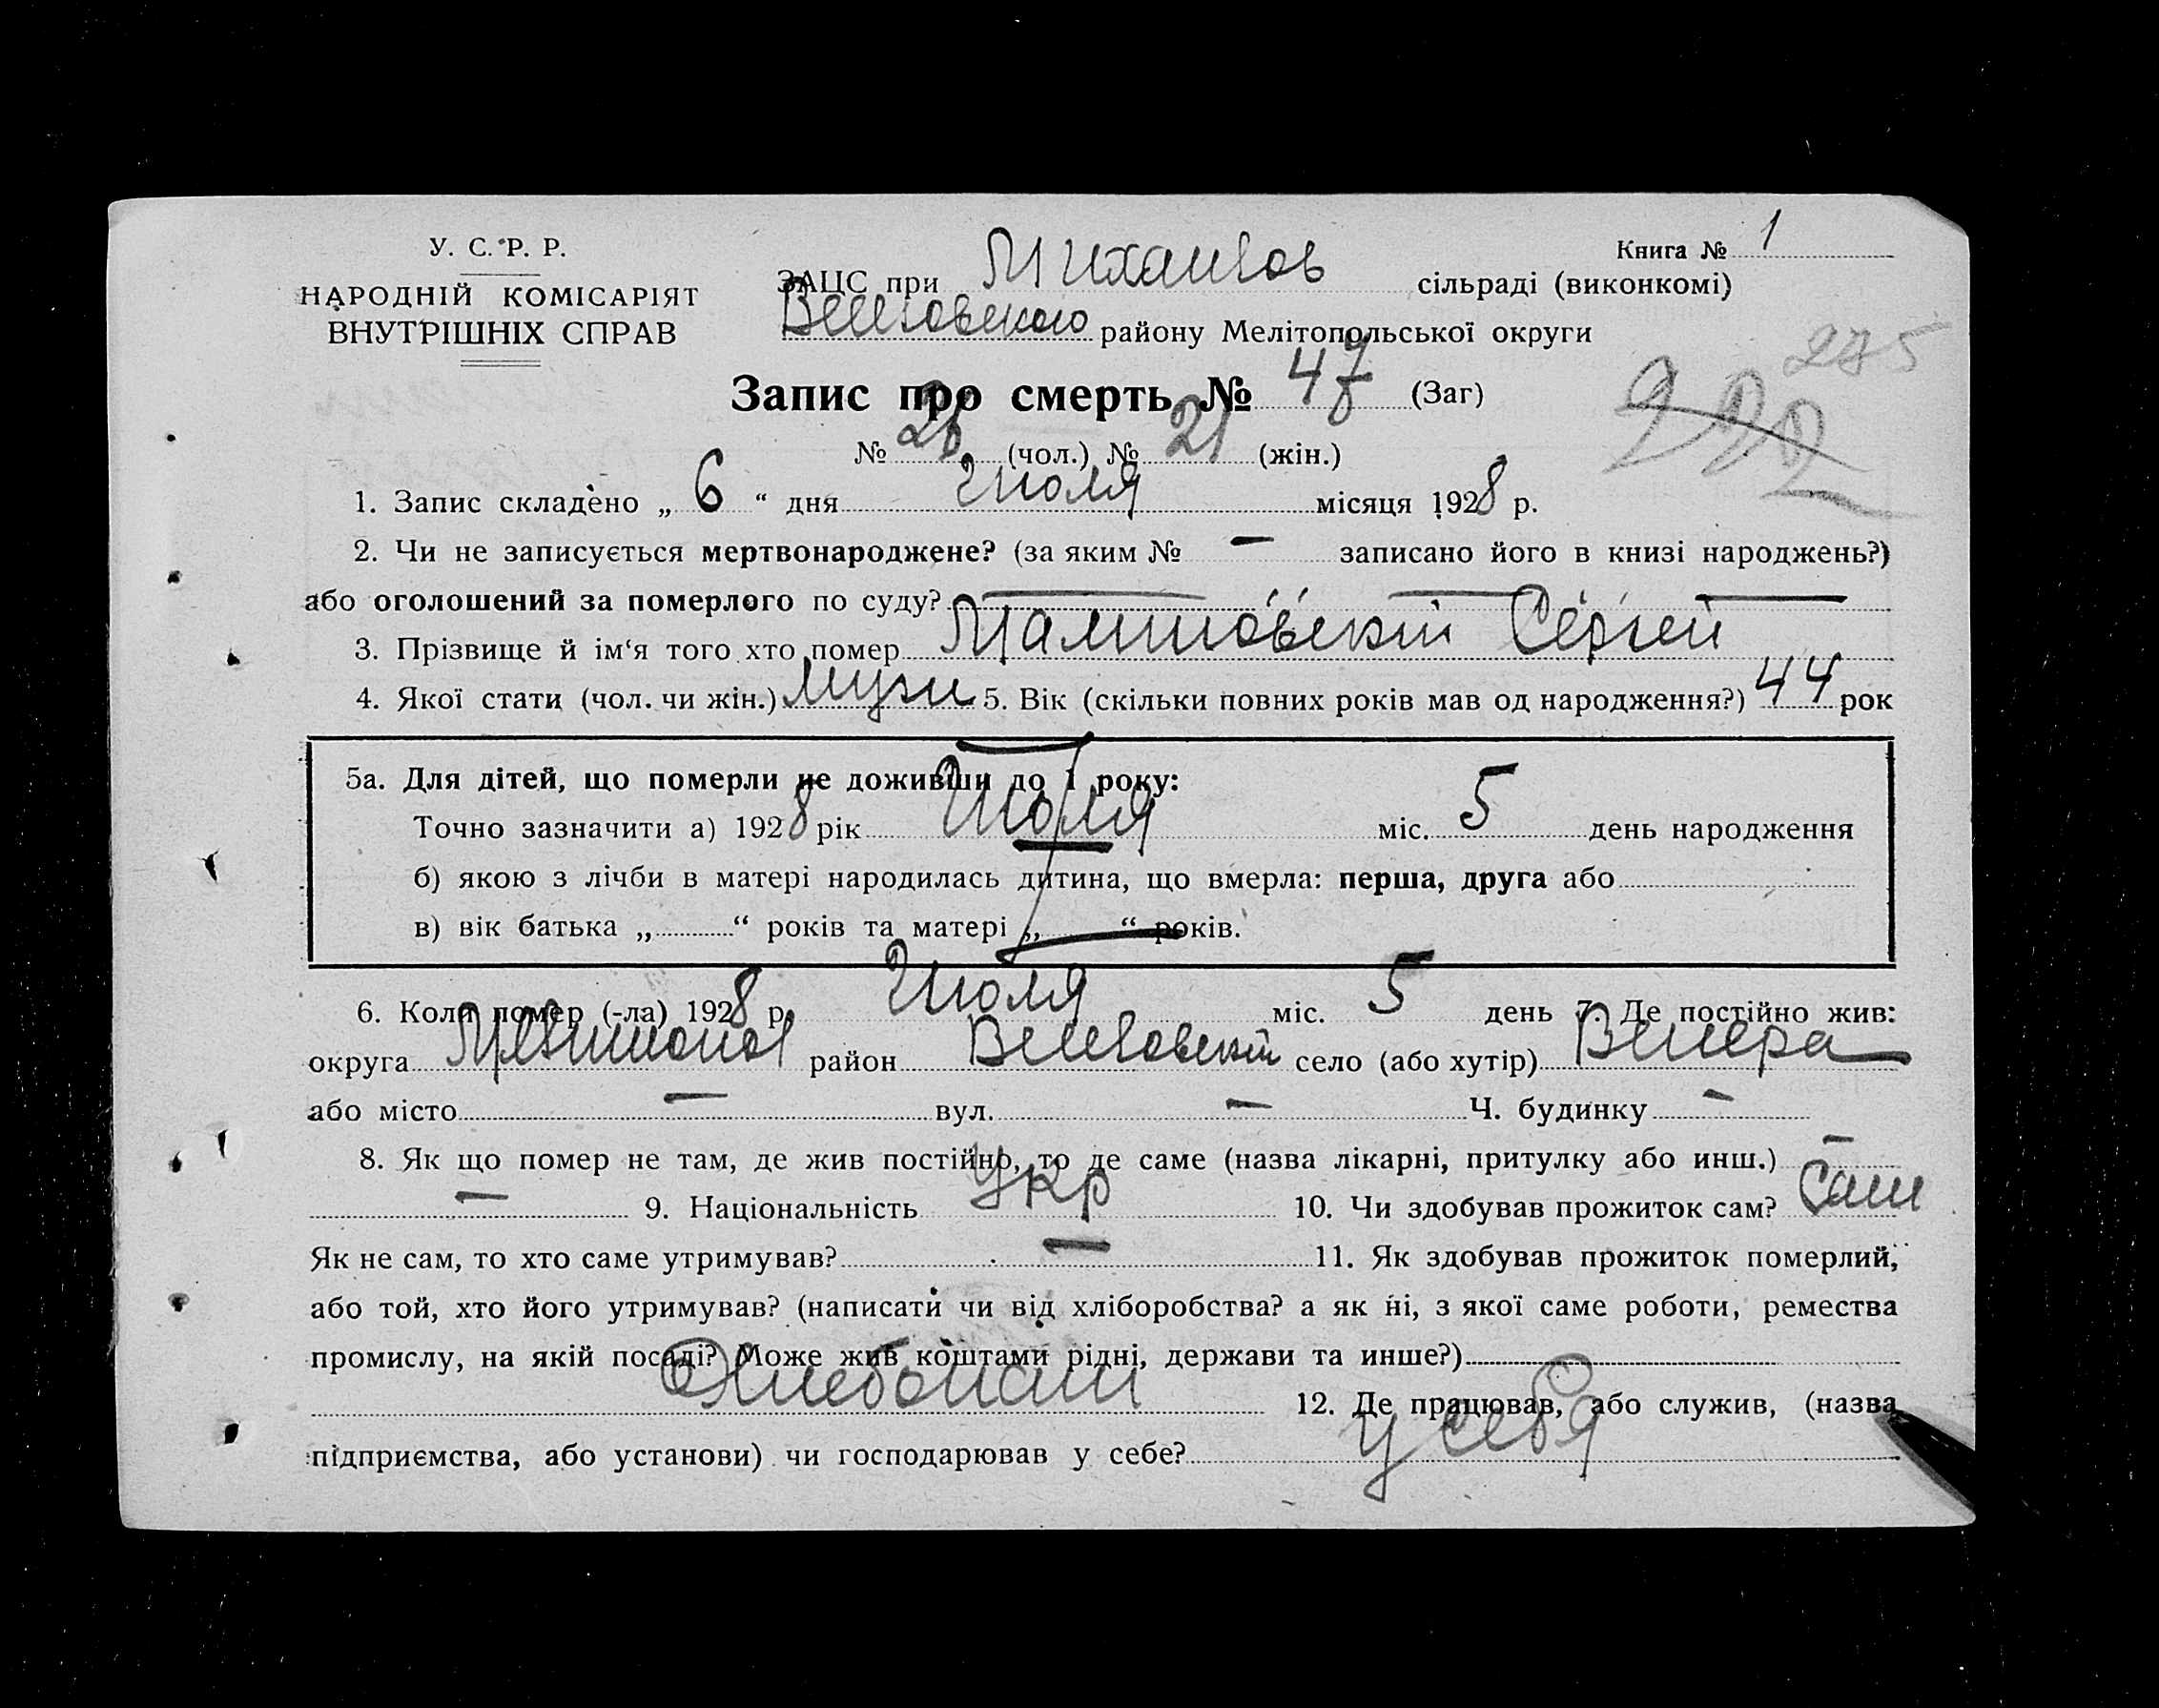 У. С. Р. Р.
НАРОДНІЙ КОМІСАРІЯТ
ВНУТРІШНІХ СПРАВ
Книга № 1
ЗАЦС при Михайлов сільраді (виконкомі)
району Мелітопольської округи
275
Запис про смерть № 47 (Заг)
№ 26 (чол.) № 21 (жін.)
1. Запис складено „ 6 “ дня Июля місяця 1928 р.
2. Чи не записується мертвонароджене? (за яким № — записано його в книзі народжень?)
або оголошений за померлого по суду?
3. Прізвище й ім‘я того хто помер Сергей
4. Якої стати (чол. чи жін.) мужч 5. Вік (скільки повних років мав од народження?) 44 рок
5а. Для дітей, що померли не доживши до 1 року:
Точно зазначити а) 1928 рік Июля міс. 5 день народження
б) якою з лічби в матері народилась дитина, що вмерла: перша, друга або
в) вік батька „ “ років та матері „ “ років.
6. Коли помер (-ла) 1928 р. Июля міс. 5 день 7. Де постійно жив:
округа район село (або хутір)
або місто — вул. — Ч. будинку —
8. Як що помер не там, де жив постійно, то де саме (назва лікарні, притулку або инш.) —
— 9. Національність Укр 10. Чи здобував прожиток сам? Сам
Як не сам, то хто саме утримував? — 11. Як здобував прожиток померлий,
або той, хто його утримував? (написати чи від хліборобства? а як ні, з якої саме роботи, ремества
промислу, на якій посаді? Може жив коштами рідні, держави та инше?)
Хлебопаш 12. Де працював, або служив, (назва
підприємства, або установи) чи господарював у себе? у себя